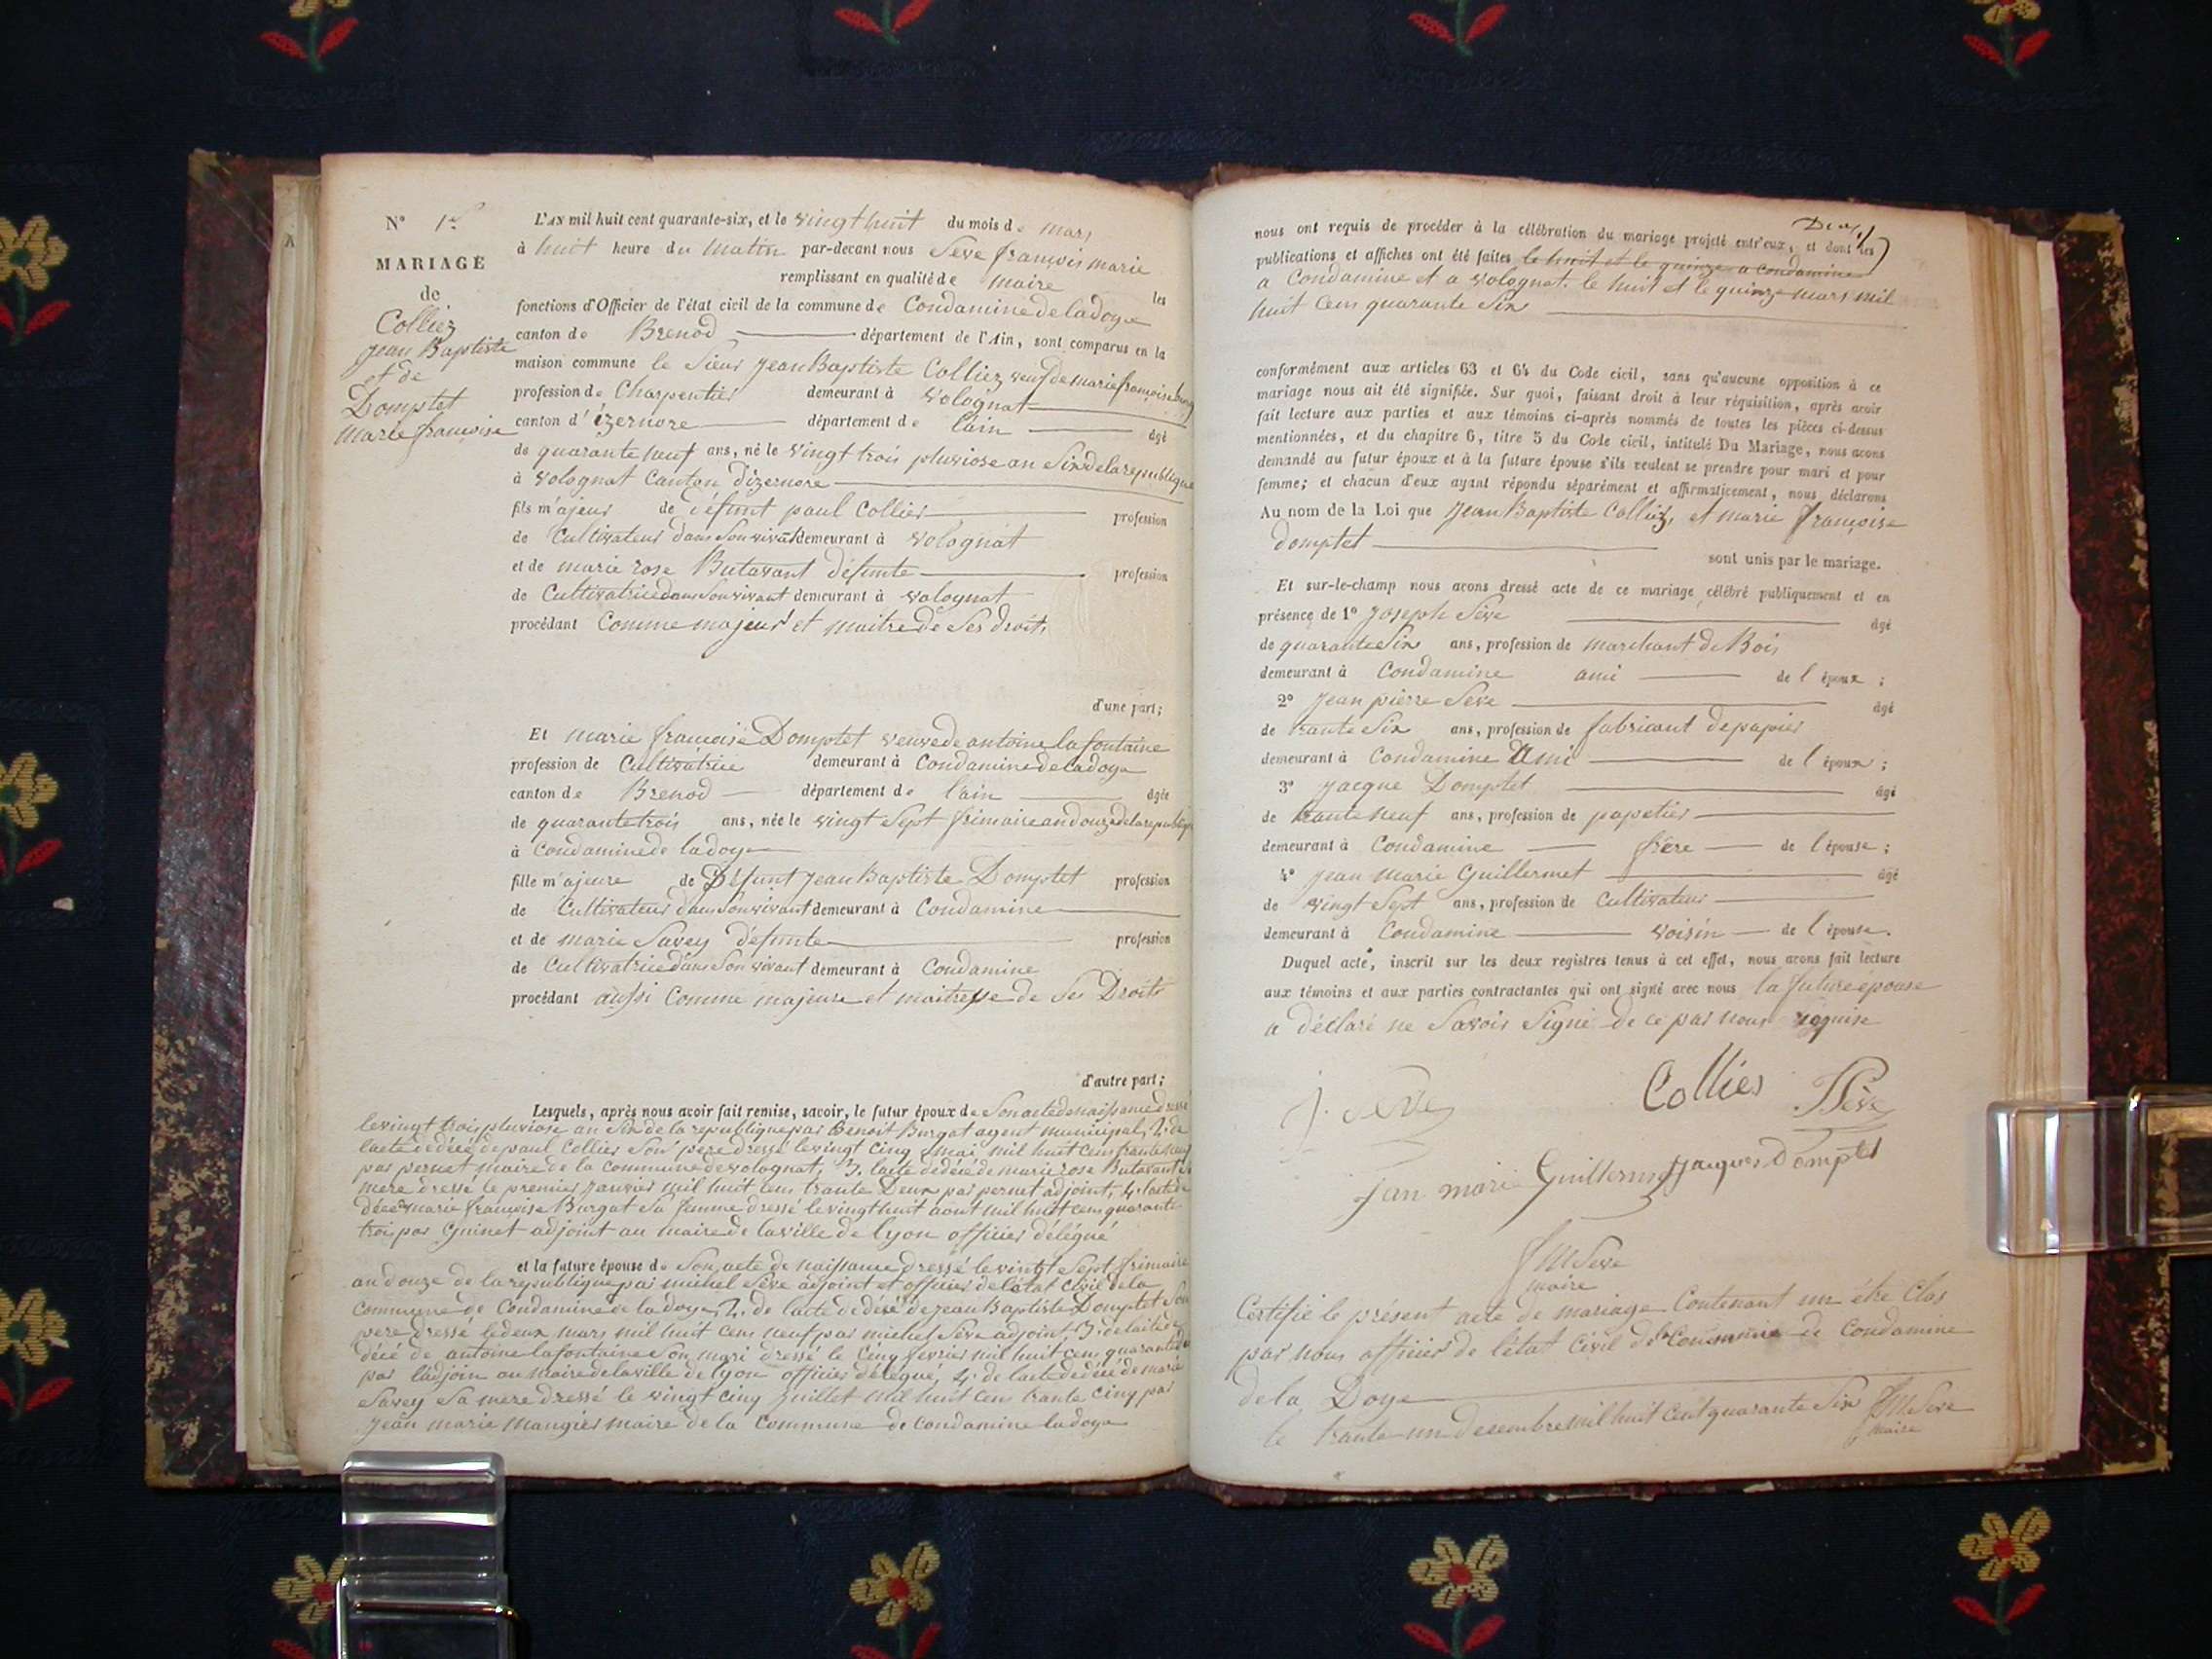 N° 1er
MARIAGE
de
Colliez
jean Baptiste
et de
Domptet
marie françoise
L'AN mil huit cent quarante-six, et le vingt huit du mois de mars
à huit heure du matin par-devant nous Seve françois marie
remplissant en qualité de maire les
fonctions d'Officier de l'état civil de la commune de Condamine de la doye
canton de Brenod département de l'Ain, sont comparus en la
maison commune le Sieur jean Baptiste Colliez veuf de marie françoise
profession de Charpentier demeurant à volognat
canton d'izernore département de l'ain âgé
de quarante neuf ans, né le vingt trois pluviose an Six de la republique
à volognat Canton d'izernore
fils majeur de défunt paul Collier profession
de Cultivateur dans Son vivant demeurant à volognat
et de marie rose Butavant défunte profession
de Cultivatrice dans Son vivant demeurant à volognat
procédant Comme majeur et maitre de Ses droits
d'une part;
Et marie françoise Domptet veuve de antoine lafontaine
profession de Cultivatrice demeurant à Condamine de la doye
canton de Brenod département de l'ain âgée
de quarante trois ans, née le vingt Sept frimaire an douze de la republique
à Condamine de la doye
fille majeure de Défunt jean Baptiste Domptet profession
de Cultivateur dans Son vivant demeurant à Condamine
et de marie Savey défunte profession
de Cultivatrice dans Son vivant demeurant à Condamine
procédant aussi Comme majeure et maitresse de Ses Droits
d'autre part;
Lesquels, après nous avoir fait remise, savoir, le futur époux de Son acte de naissance dressé
le vingt trois pluviose an Six de la republique par Benoit Burgat agent municipal, 2. de
l'acte de décé de paul Collier Son pere dressé le vingt cinq mai mil huit cens trante neuf
par pernet maire de la commune de volognat, 3. l'acte de décé de marie rose Butavant Sa
mere dressé le premier janvier mil huit cens trante Deux par pernet adjoint, 4. l'acte de
décé marie françoise Burgat Sa femme dressé le vingt huit aout mil huit cens quarante
troi par Guinet adjoint au maire de la ville de lyon officier délégué
et la future épouse de Son acte de naissance dressé le vingt Sept frimaire
an douze de la republique par michel Sève adjoint et officier de l'état Civil de la
Commune de Condamine de la doye, 2. de l'acte de décé de jean Baptiste Domptet Son
pere dressé le deux mars mil huit cens neuf par michel Sève adjoint, 3. de l'acte de
décé de antoine lafontaine Son mari dressé le cinq fevrier mil huit cens quarante
par l'adjoin au maire de la ville de lyon officier délégué, 4. de l'acte de décé de marie
Savey Sa mere dressé le vingt cinq juillet mil huit cens trante cinq par
jean marie mangier maire de la Commune de Condamine la doye
nous ont requis de procéder à la célébration du mariage projeté entr'eux, et dont les
publications et affiches ont été faites le huit et le quinze a condamine
a Condamine et a volognat. le huit et le quinze mars mil
huit cens quarante Six
conformément aux articles 63 et 64 du Code civil, sans qu'aucune opposition à ce
mariage nous ait été signifiée. Sur quoi, faisant droit à leur réquisition, après avoir
fait lecture aux parties et aux témoins ci-après nommés de toutes les pièces ci-dessus
mentionnées, et du chapitre 6, titre 5 du Code civil, intitulé Du Mariage, nous avons
demandé au futur époux et à la future épouse s'ils veulent se prendre pour mari et pour
femme; et chacun d'eux ayant répondu séparément et affirmativement, nous déclarons
Au nom de la Loi que jean Baptiste Colliez, et marie françoise
domptet
sont unis par le mariage.
Et sur-le-champ nous avons dressé acte de ce mariage célébré publiquement et en
présence de 1° joseph Sève âgé
de quarante Six ans, profession de marchant de Bois
demeurant à Condamine ami de l'époux;
2° jean pierre Seve âgé
de trante Six ans, profession de fabricant de papier
demeurant à Condamine Ami de l'époux;
3° jacque Domptet âgé
de trante neuf ans, profession de papetier
demeurant à Condamine frère de l'épouse;
4° jean marie Guillermet âgé
de vingt Sept ans, profession de Cultivateur
demeurant à Condamine voisin de l'épouse.
Duquel acte, inscrit sur les deux registres tenus à cet effet, nous avons fait lecture
aux témoins et aux parties contractantes qui ont signé avec nous la future épouse
a déclaré ne Savoir Signé de ce par nous requise
j. Seve
Collies
Sève
jan marie Guillermet
jacques Domptet
fM Seve
maire
Certifié le présent acte de mariage Contenant un été Clos
par nous officier de l'état Civil de Commune de Condamine
de la Doye
le trante un decembre mil huit cent quarante Six fM Seve
maire